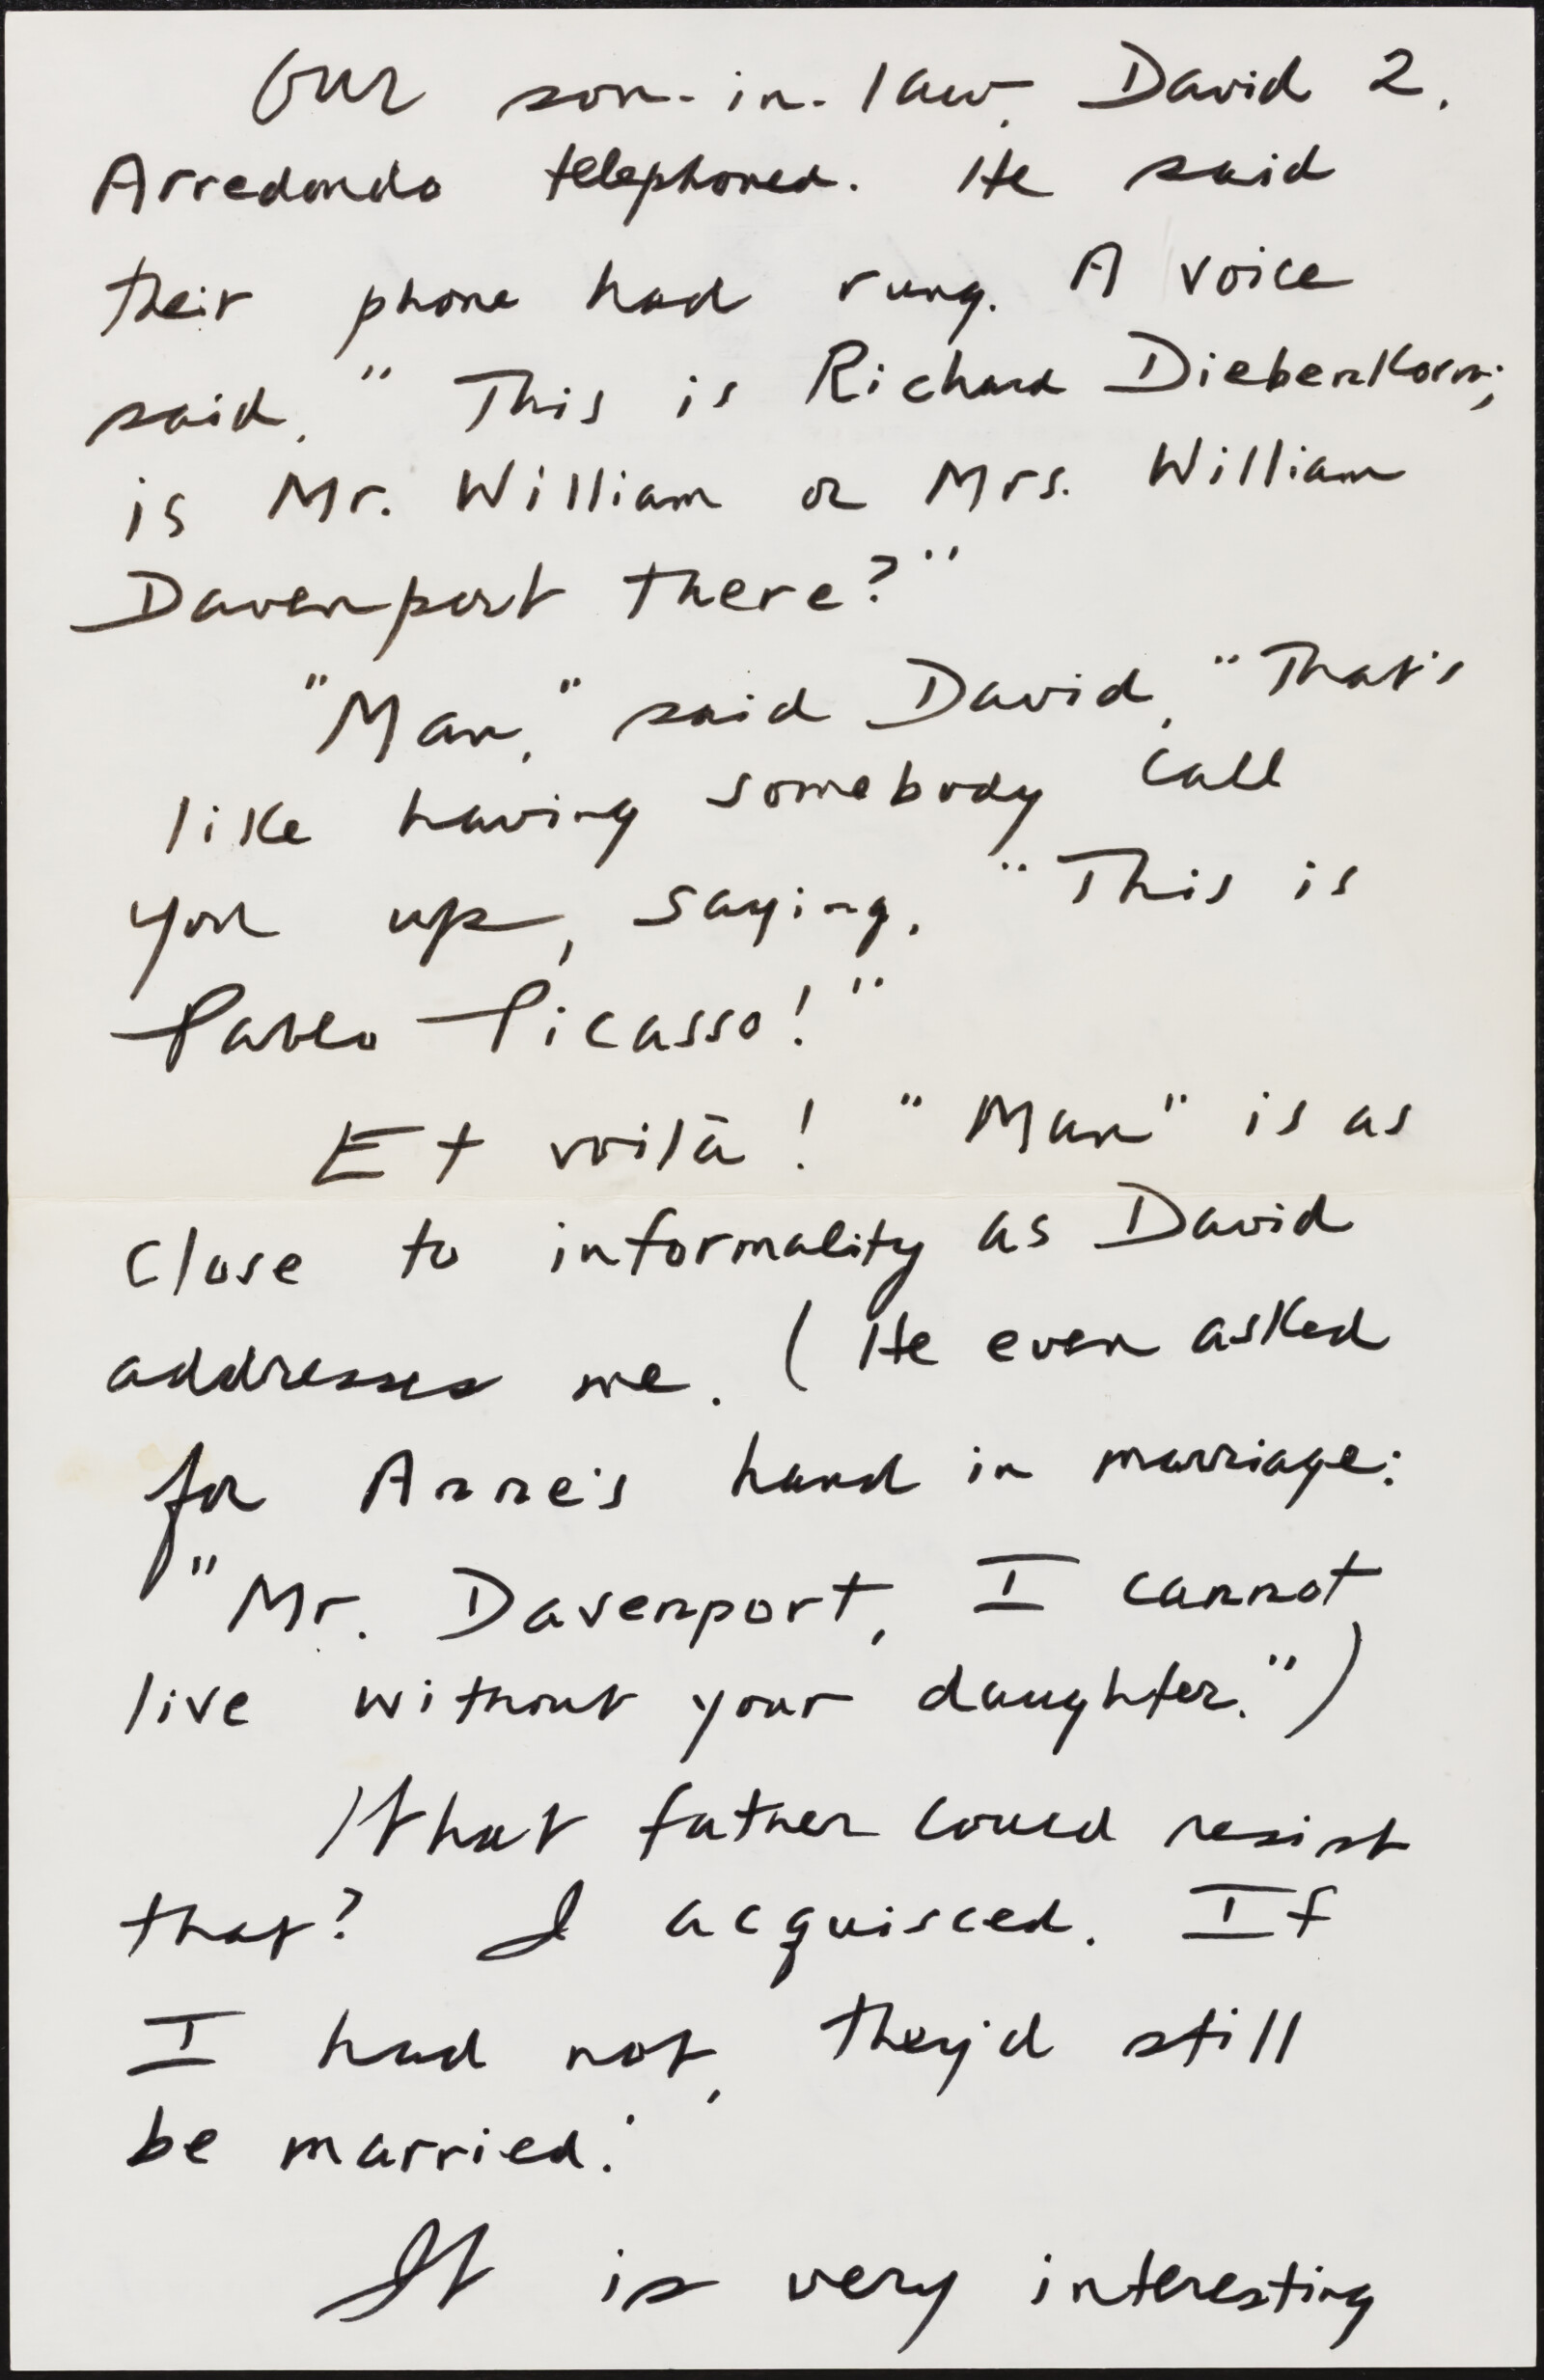 Our son-in-law, David 2.
Arredondo telephoned. He said
their phone had rung. A voice
said, "This is Richard Diebenkorn;
is Mr. William or Mrs. William
Davenport there?"
"Man," said David, "That's
like having somebody call
you up, saying, "This is
Pablo Picasso!"
Et voilà! "Man" is as
close to informality as David
addresses me. (He even asked
for Anne's hand in marriage:
"Mr. Davenport, I cannot
live without your daughter.")
What father could resist
that? I acquisced. If
I had not, they'd still
be married.
It is very interesting